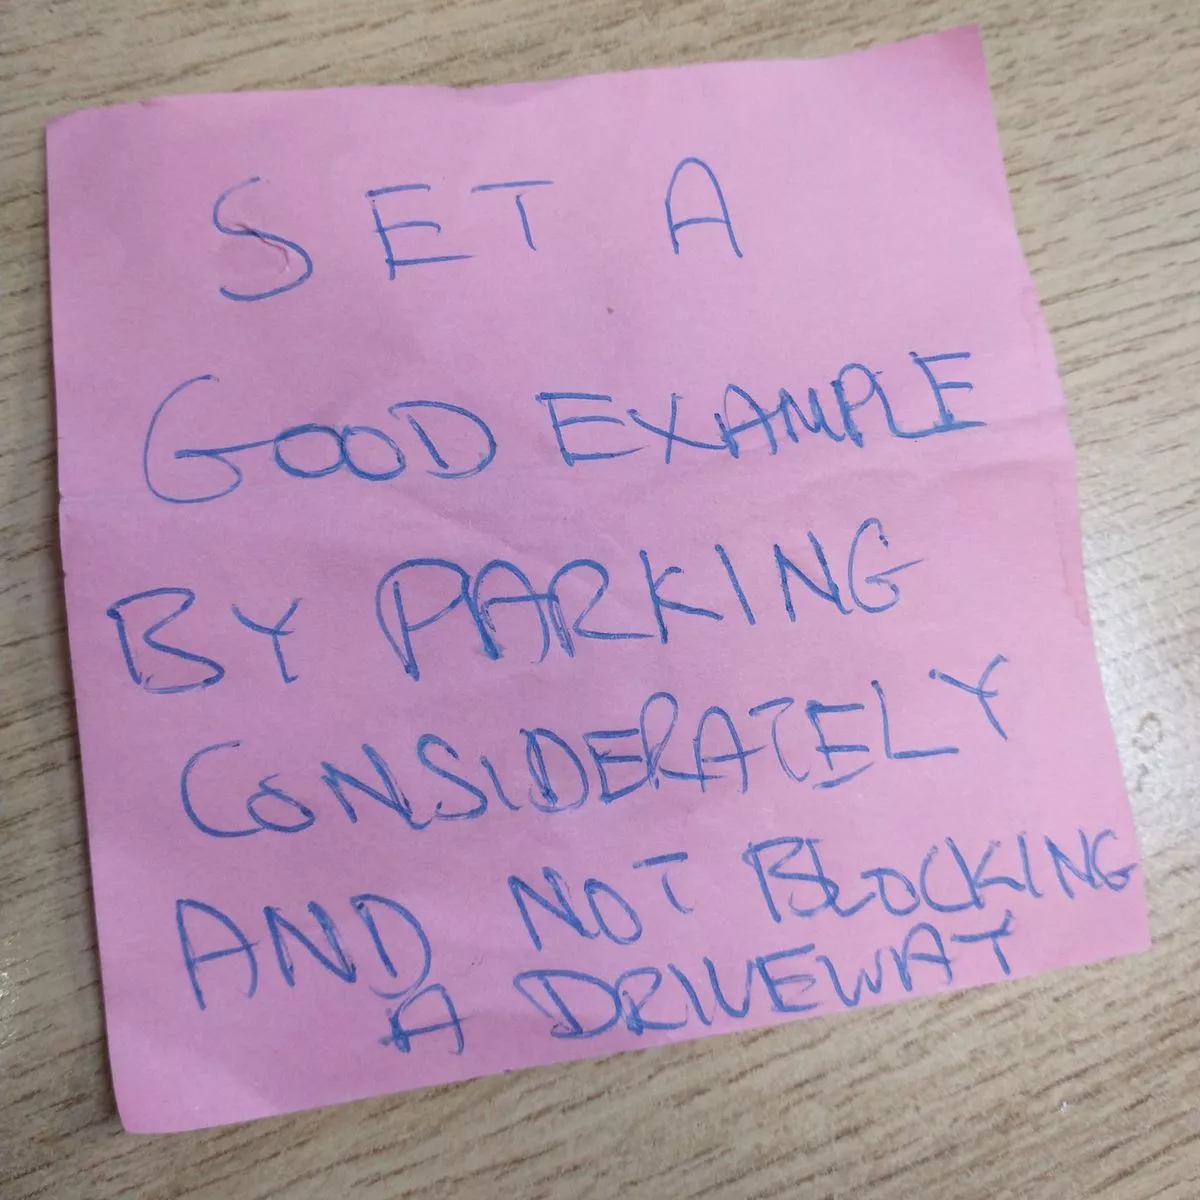 SET A
GOOD EXAMPLE
BY PARKING
CONSIDERATELY
AND NOT BLOCKING
A DRIVEWAY